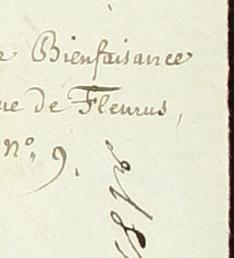 Bienfaisance
ue de Fleurus,
N°. 9.